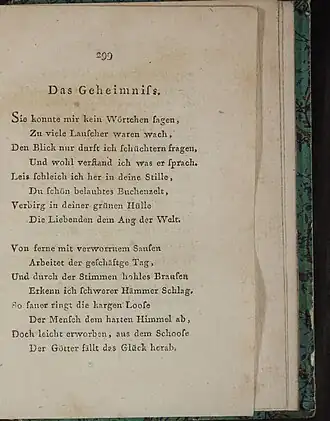 299
Das Geheimniſs.
Sie konnte mir kein Wörtchen ſagen,
Zu viele Lauſcher waren wach,
Den Blick nur durft ich ſchüchtern fragen,
Und wohl verſtand ich was er ſprach.
Leis ſchleich ich her in deine Stille,
Du ſchön belaubtes Buchenzelt,
Verbirg in deiner grünen Hülle
Die Liebenden dem Aug der Welt.
Von ferne mit verworrnem Sauſen
Arbeitet der geſchäftge Tag,
Und durch der Stimmen hohles Brauſen
Erkenn ich ſchwerer Hämmer Schlag.
So ſauer ringt die kargen Looſe
Der Menſch dem harten Himmel ab,
Doch leicht erworben, aus dem Schooſe
Der Götter fällt das Glück herab.